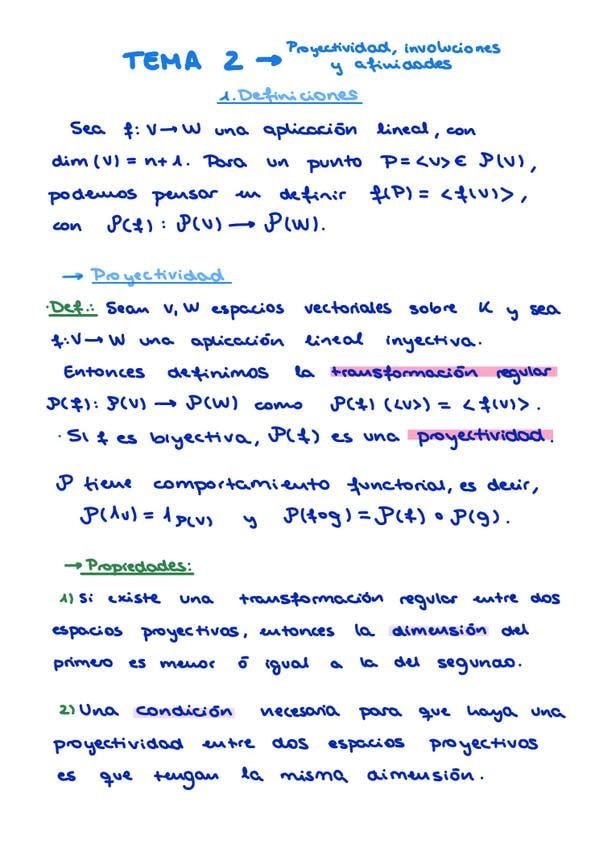 TEMA 2 → Proyectividad, involuciones
y afinidades
1. Definiciones
Sea f: V → W una aplicación lineal, con
dim (V) = n+1. Para un punto P = <v> ∈ P(V),
podemos pensar en definir f(P) = <f(v)>,
con P(f) : P(V) → P(W).
→ Proyectividad
·Def.: Sean V, W espacios vectoriales sobre K y sea
f: V → W una aplicación lineal inyectiva.
Entonces definimos la transformación regular
P(f): P(V) → P(W) como P(f) (<v>) = <f(v)>.
· Si f es biyectiva, P(f) es una proyectividad.
P tiene comportamiento functorial, es decir,
P(1v) = 1P(V) y P(f∘g) = P(f) ∘ P(g).
→ Propiedades:
1) Si existe una transformación regular entre dos
espacios proyectivos, entonces la dimensión del
primero es menor ó igual a la del segundo.
2) Una condición necesaria para que haya una
proyectividad entre dos espacios proyectivos
es que tengan la misma dimensión.